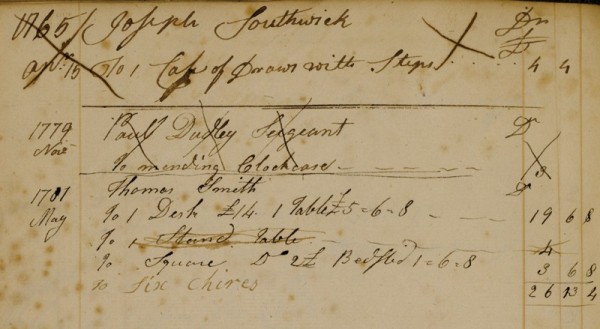 1765 / Joseph Southwick Dr
Apr 15 To 1 Case of Draws with Steps £ 4 4
1779 Paul Dudley Sergeant Dr
Nov To mending Clockcase 3
1781 Thomas Smith Dr
May To 1 Desk £14. 1 Table £5=6=8 19 6 8
To 1 Stand Table 4
To Square Do 2£ Bedsted 1=6=8 3 6 8
to Six Chires 26 13 4